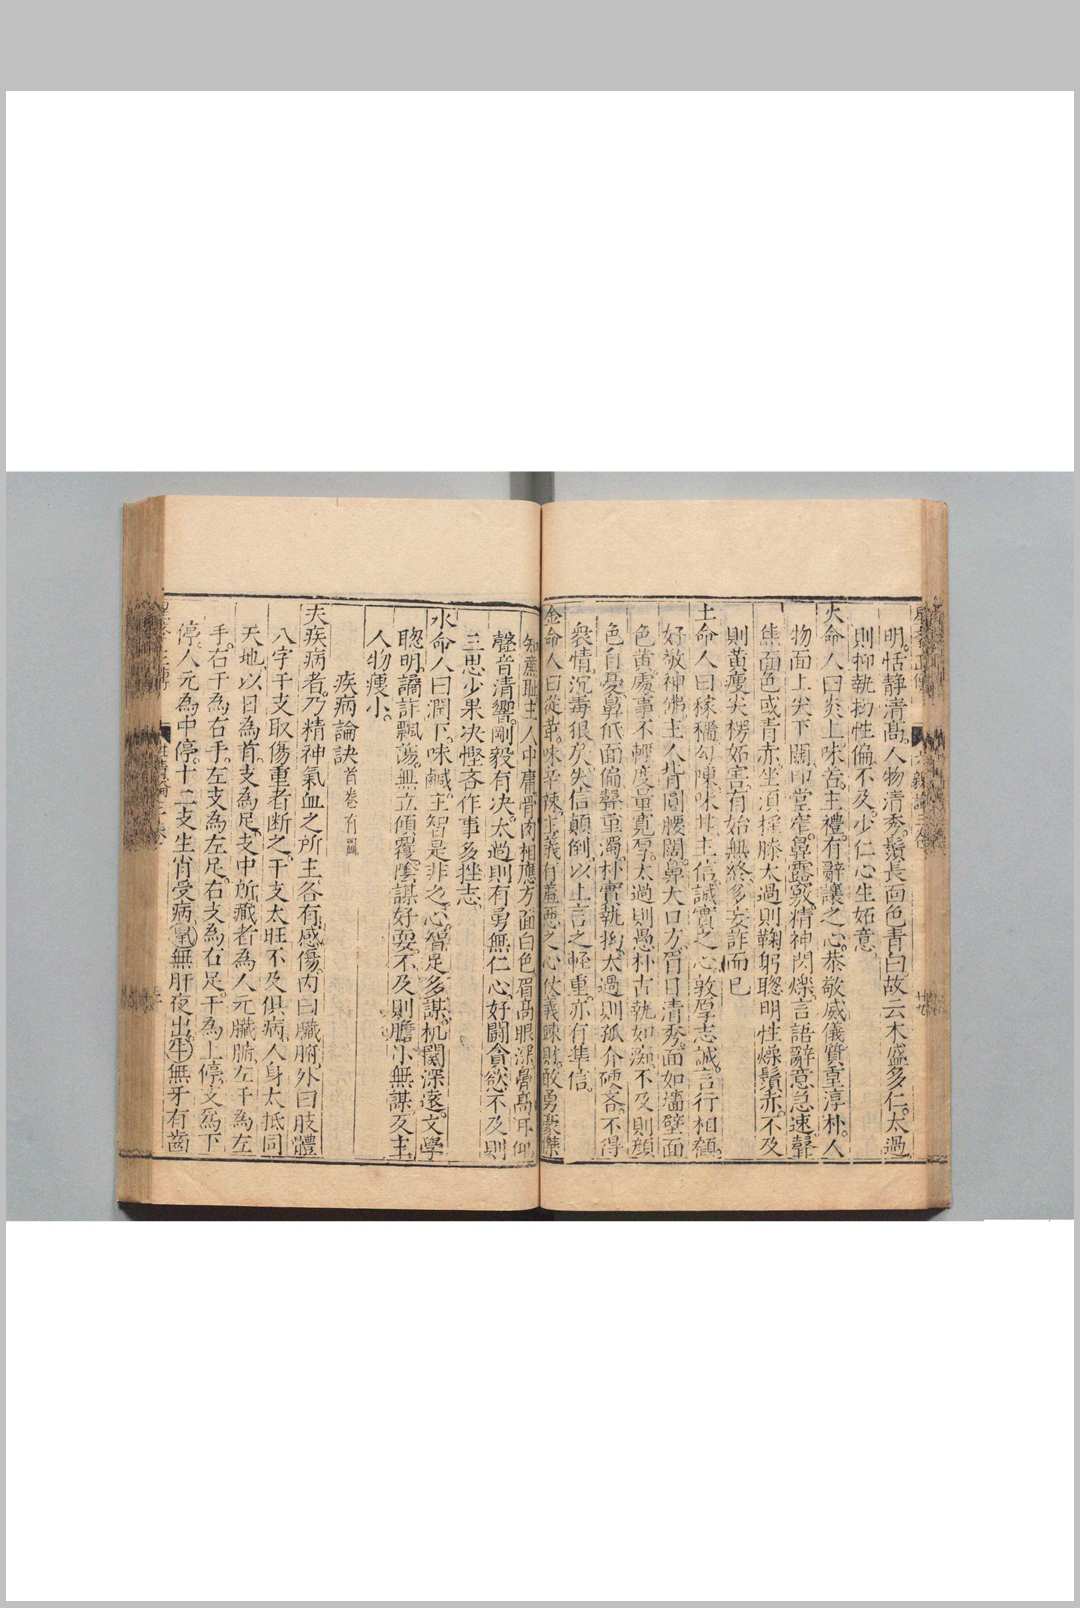 明。恬靜清髙。人物清秀。鬚長面色青白故云木盛多仁。太過
則抑執拗性偏。不及。少仁心生妬意。
火命人曰炎上。味苦。主禮。有辭讓之心。恭敬威儀質重淳朴。人
物面上尖下闊。印堂窄。鼻露竅。精神閃爍。言語辭意急速。聲
焦。面色或青赤。坐須搖膝。太過則鞠躬聦明性燥鬚赤。不及
則黃瘦尖楞妬害。有始無終。多妄詐而已
土命人曰稼穡勾陳。味甘。主信。誠實之心。敦厚志誠。言行相顧。
好敬神佛。主人背圓腰闊。鼻大口方。眉目清秀。面如墻壁面
色黃。處事不輕。度量寬厚。太過則愚朴古執如痴。不及則顔
色自憂。鼻低面偏。聲重濁。朴實執拗。太過則孤介硬吝。不得
衆情。沉毒狠戾失信顛倒。以上言之輕重。亦有準信。
金命人曰從革。味辛辣。主義。有羞惡之心。仗義踈財。敢勇豪傑
知廉耻。主人中庸。骨肉相應。方面白色。眉髙眼深。鼻髙耳仰。
聲音清響。剛毅有决。太過則有勇無仁心。好鬪貪慾。不及則
三思少果决慳吝作事多挫志。
水命人曰潤下。味鹹。主智。是非之心。智足多謀。机関深遠。文學
聦明。譎詐飄蕩。無立傾覆。隂謀好惡。不及則膽小無謀。反主
人物瘦小。
疾病論訣
夫疾病者。乃精神氣血之所主各有感傷。內曰臟腑外曰肢體
八字干支取傷重者断之。干支太旺不及俱病。人身太抵同
天地。以日為首。支為足。支中所藏者為人元臟腑。左干為左
手。右干為右手。左支為左足。右支為右足。干為上停。支為下
停。人元為中停。十二支生肖受病。鼠無肝夜出。牛無牙有齒